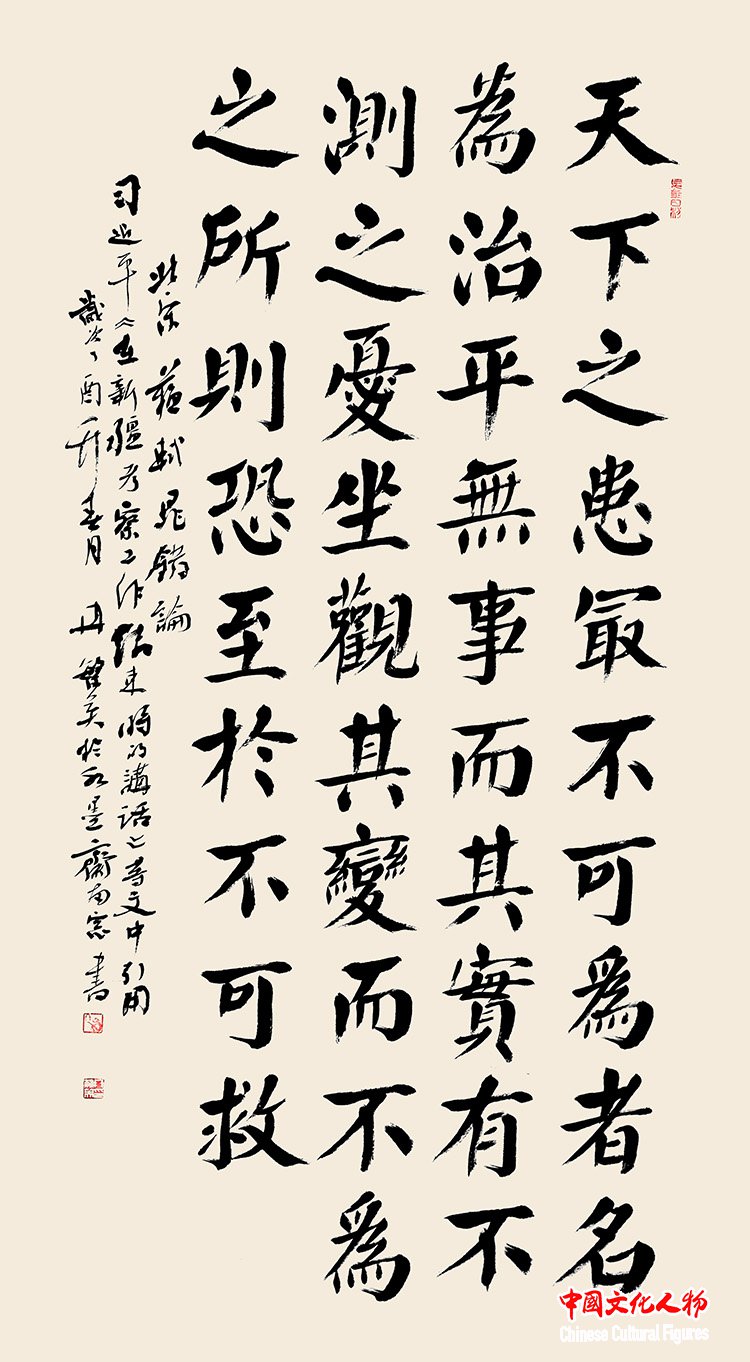 天下之患最不可為者名
為治平無事而其實有不
測之憂坐觀其變而不為
之所則恐至於不可救
北宋蘇軾晁錯論
习近平《在新疆考察工作結束時的講話》等文中引用
歲次丁酉新春月冉於水墨齋南窗書
中國文化人物
Chinese Cultural Figures